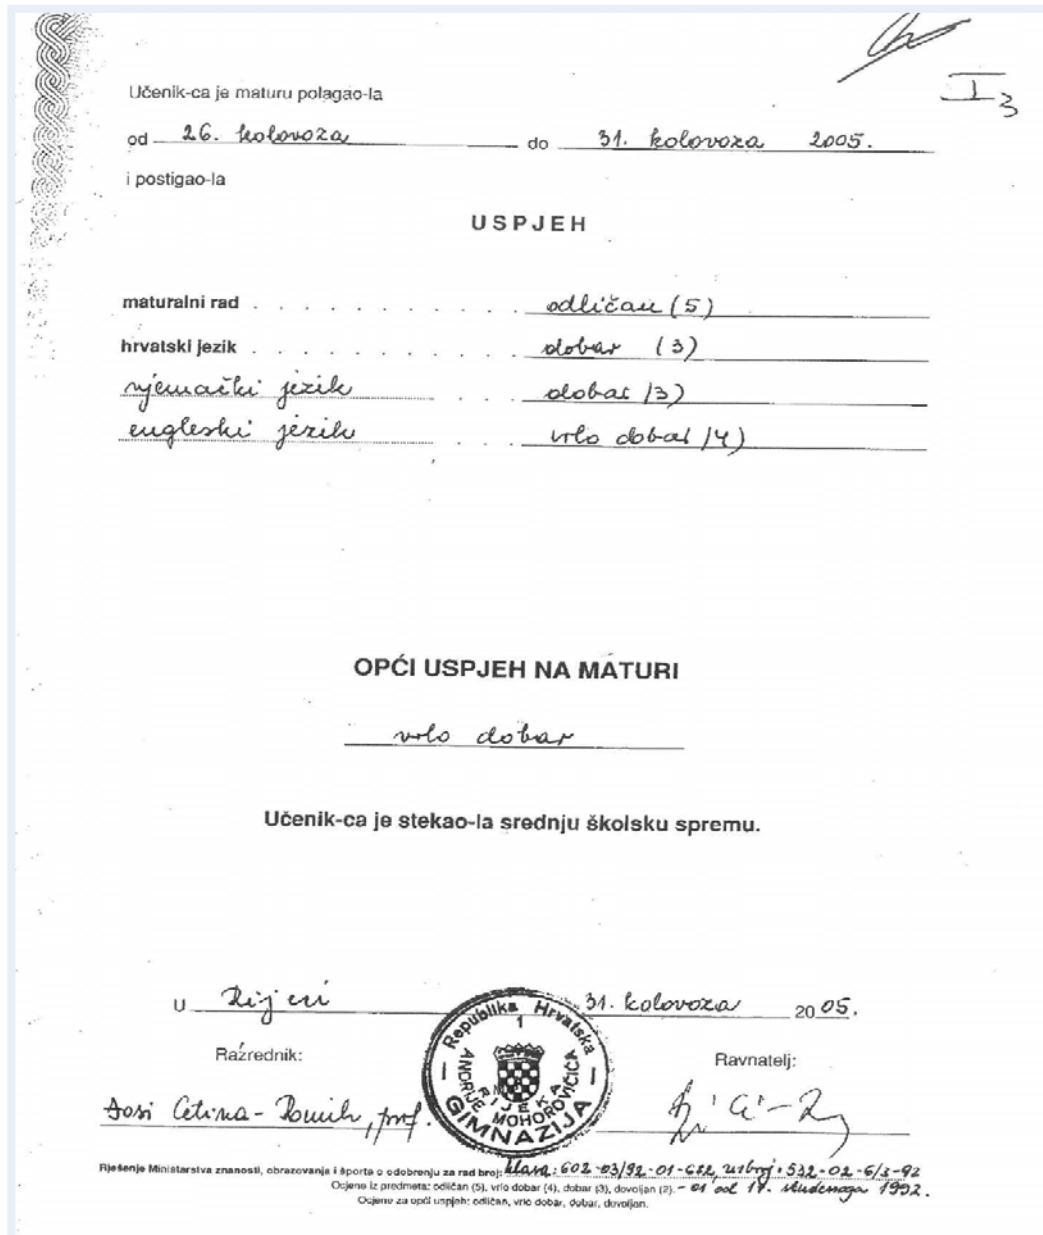 I 3
Učenik-ca je maturu polagao-la
od 26. kolovoza do 31. kolovoza 2005.
i postigao-la
USPJEH
maturalni rad . . . . . . . . . . . odličan (5)
hrvatski jezik . . . . . . . . . . . dobar (3)
njemački jezik . . . dobar (3)
engleski jezik . . . vrlo dobar (4)
OPĆI USPJEH NA MATURI
vrlo dobar
Učenik-ca je stekao-la srednju školsku spremu.
U Rijeci 31. kolovoza 2005.
Republika Hrvatska
1
ANDRIJE MOHOROVIČIĆA
RIJEKA
GIMNAZIJA
Razrednik: Ravnatelj:
Cetina- prof.
Rješenje Ministarstva znanosti, obrazovanja i športa o odobrenju za rad broj: klasa: 602-03/92-01-622, urbroj: 532-02-6/3-92
Ocjene iz predmeta: odličan (5), vrlo dobar (4), dobar (3), dovoljan (2). - 01 od 17. studenoga 1992.
Ocjene za opći uspjeh: odličan, vrlo dobar, dobar, dovoljan.